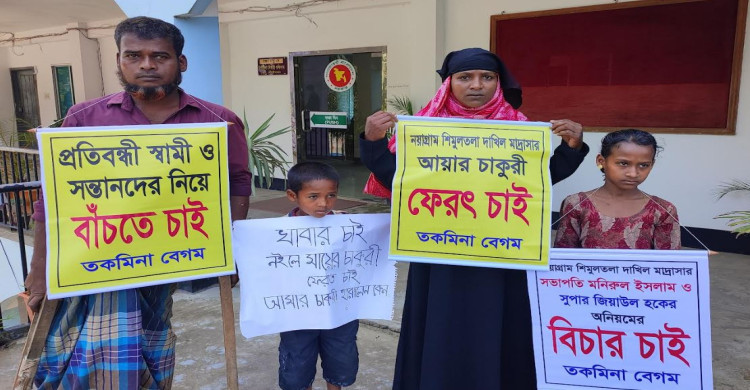 প্রতিবন্ধী স্বামী ও
সন্তানদের নিয়ে
বাঁচতে চাই
তকমিনা বেগম
খাবার চাই
নইলে মায়ের চাকরী
ফেরত চাই
আমার চাকরী
নয়াগ্রাম শিমুলতলা দাখিল মাদ্রাসার
আয়ার চাকুরী
ফেরৎ চাই
তকমিনা বেগম
নয়াগ্রাম শিমুলতলা দাখিল মাদ্রাসার
সভাপতি মনিরুল ইসলাম ও
সুপার জিয়াউল হকের
অনিয়মের
বিচার চাই
তকমিনা বেগম